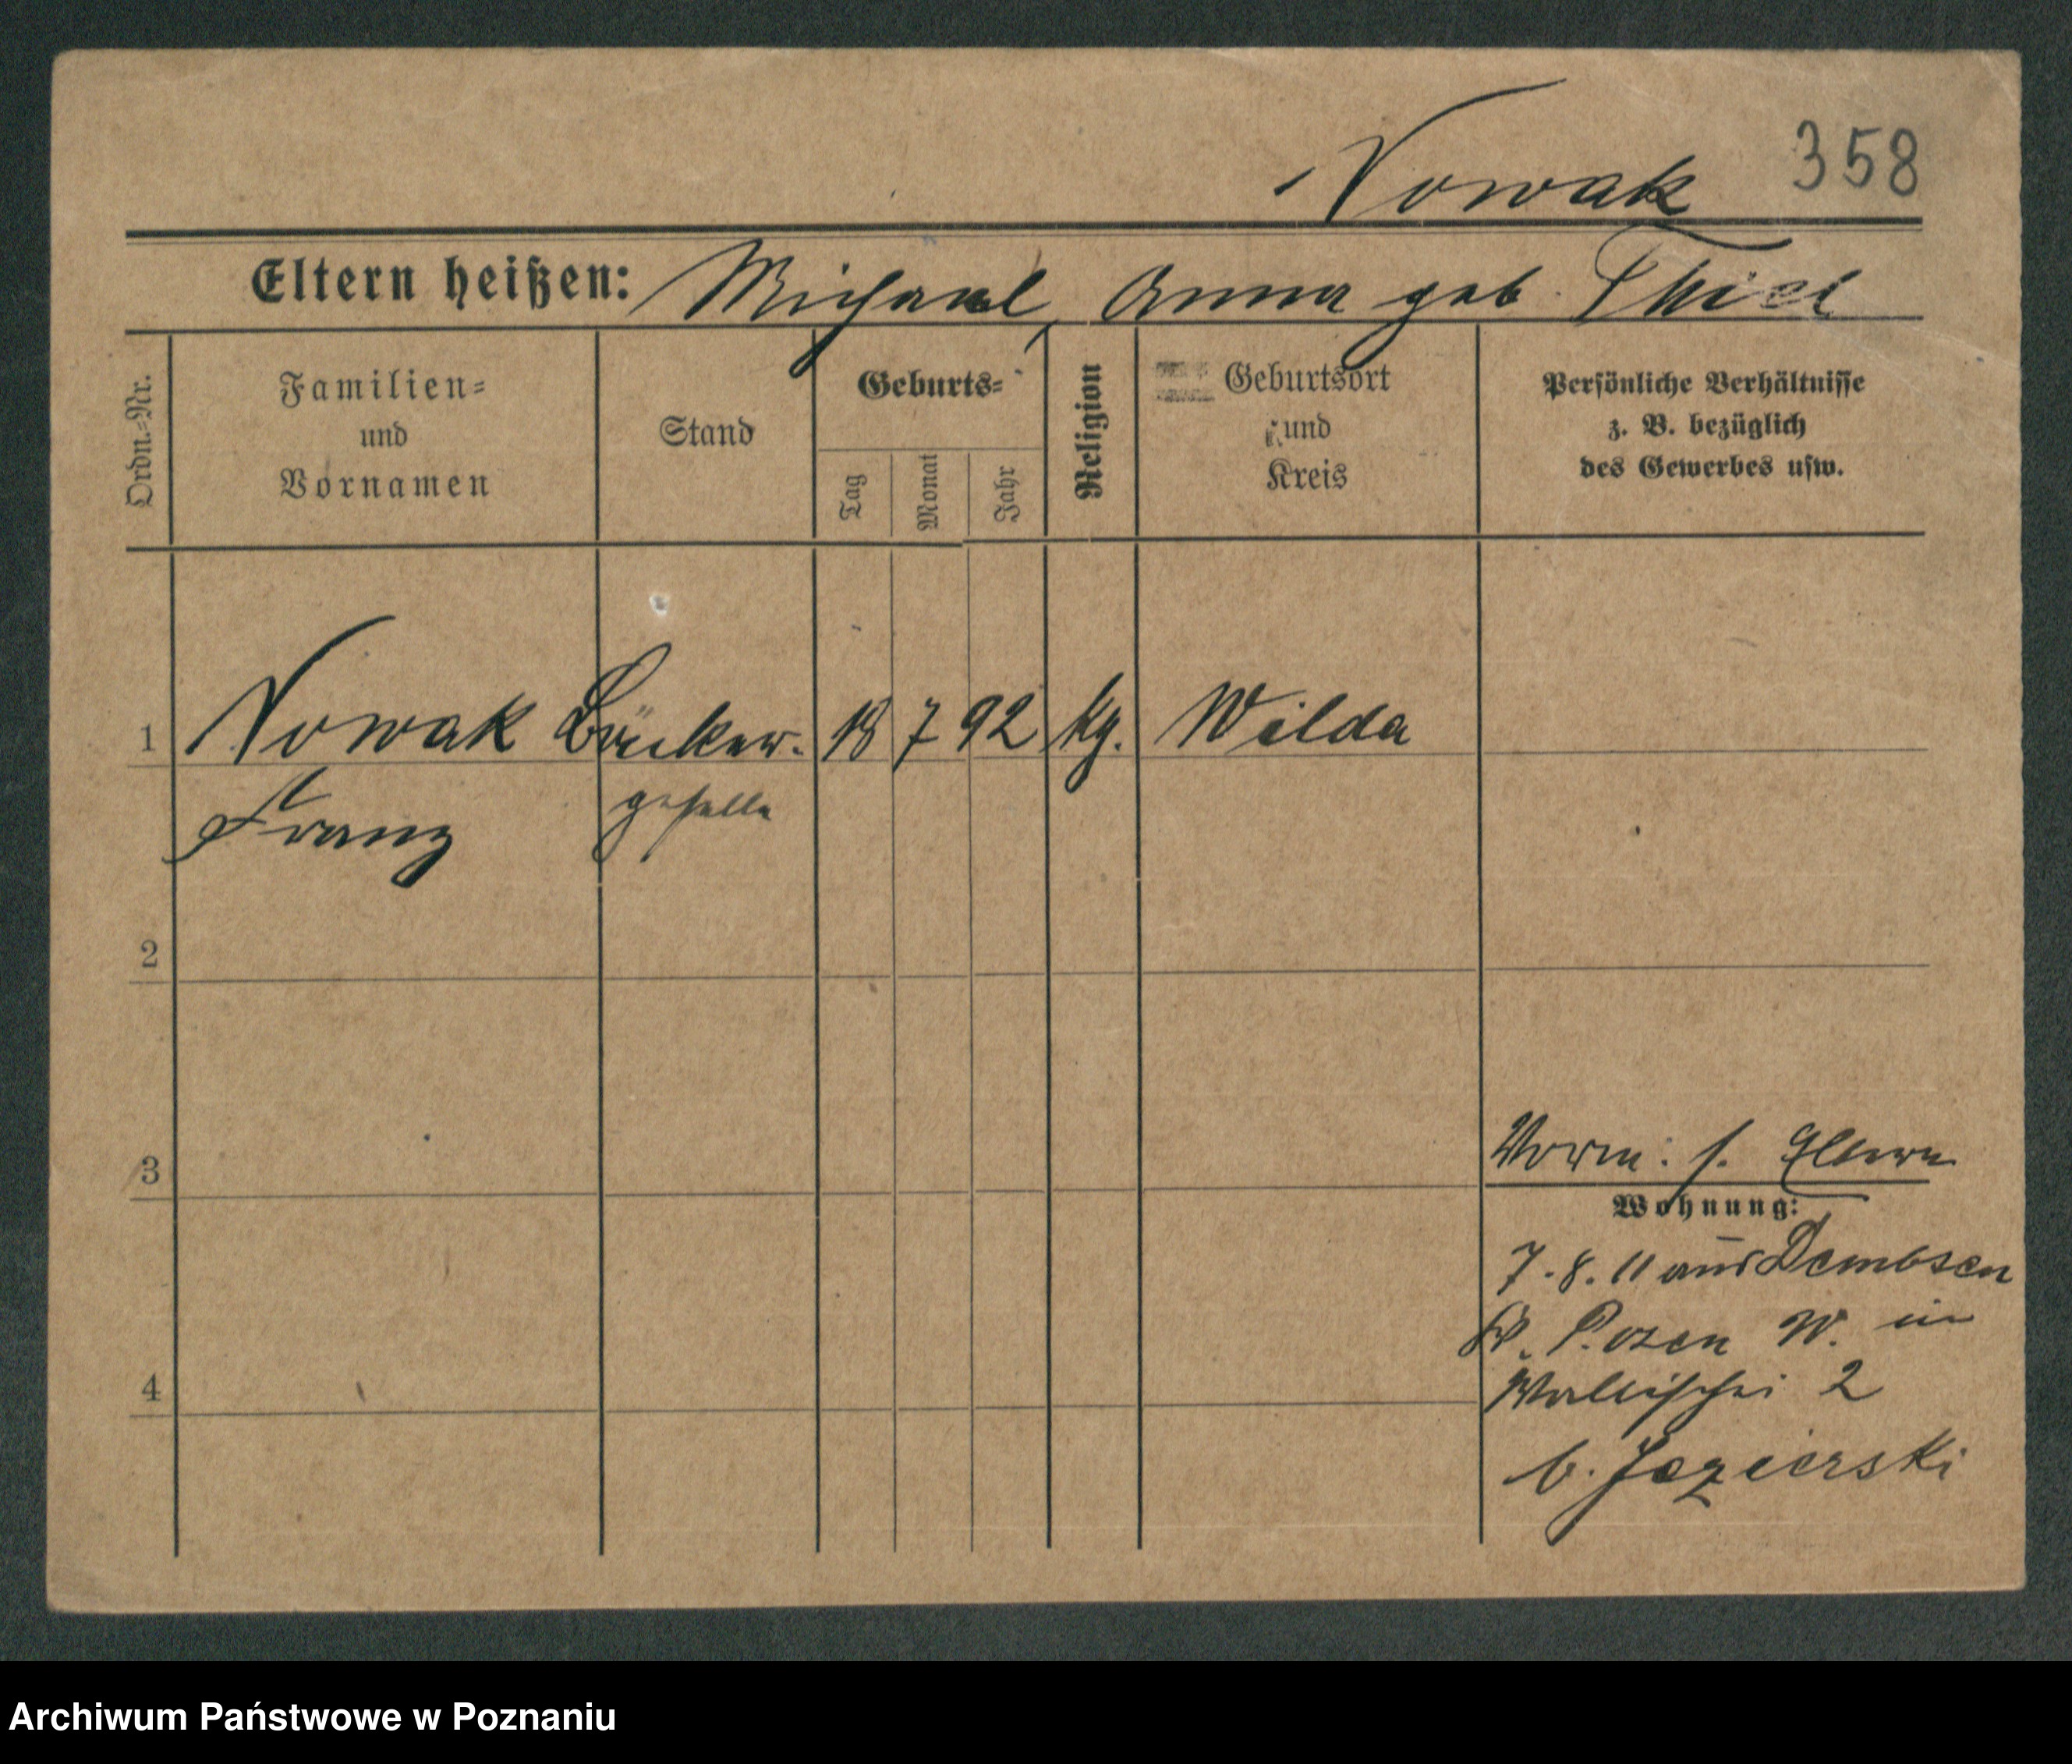 Nowak 358
Eltern heißen: Michael, Anna geb. Thiel
Ordn.-Nr.
Familien-
und
Vornamen
Stand
Geburts-
Tag
Monat
Jahr
Religion
Geburtsort
und
Kreis
Persönliche Verhältnisse
z. B. bezüglich
des Gewerbes usw.
1 Nowak Bäcker- 18 7 92 kg. Wilda
Franz geselle
2
3
Vorm: s. Eltern
Wohnung:
7.8.11 aus Dembsen
Kr. Posen W. in
Wallischei 2
b. Jezierski
4
Archiwum Państwowe w Poznaniu